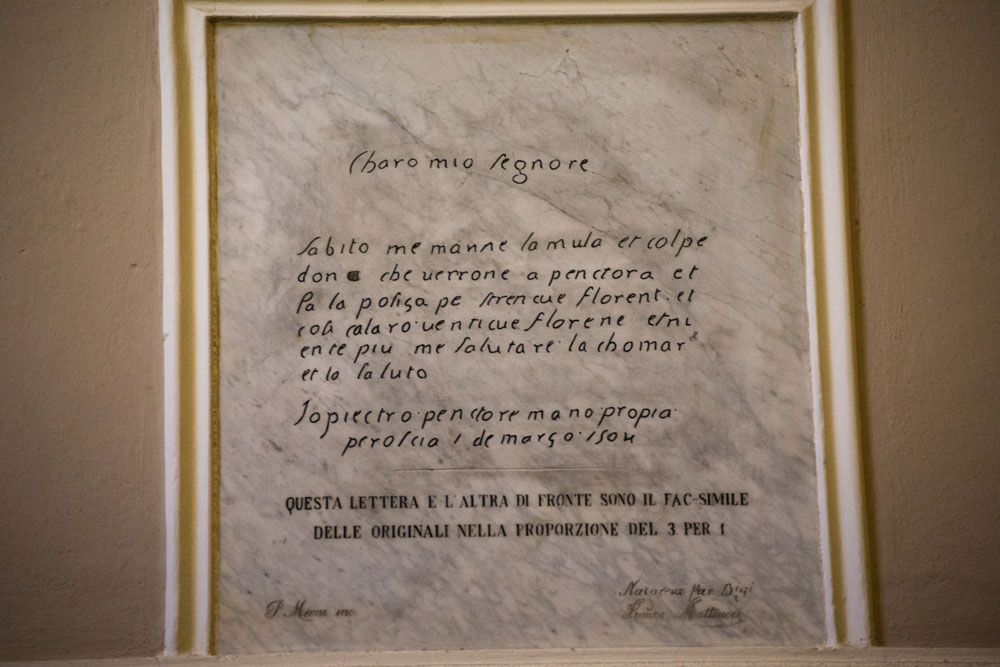 Charo mio segnore
sabito me manne la mula et colpe
don che uerrone a penctora et
fa la polisa pe strencue florent. et
cosi calaro uenticue florene etni
ente piu me salutare la chomar
et lo saluto
Jo piectro penctore mano propia
peroscia 1 de março 1504
QUESTA LETTERA E L'ALTRA DI FRONTE SONO IL FAC-SIMILE
DELLE ORIGINALI NELLA PROPORZIONE DEL 3 PER 1
Bigi
P. Meoni inc. Matteucci